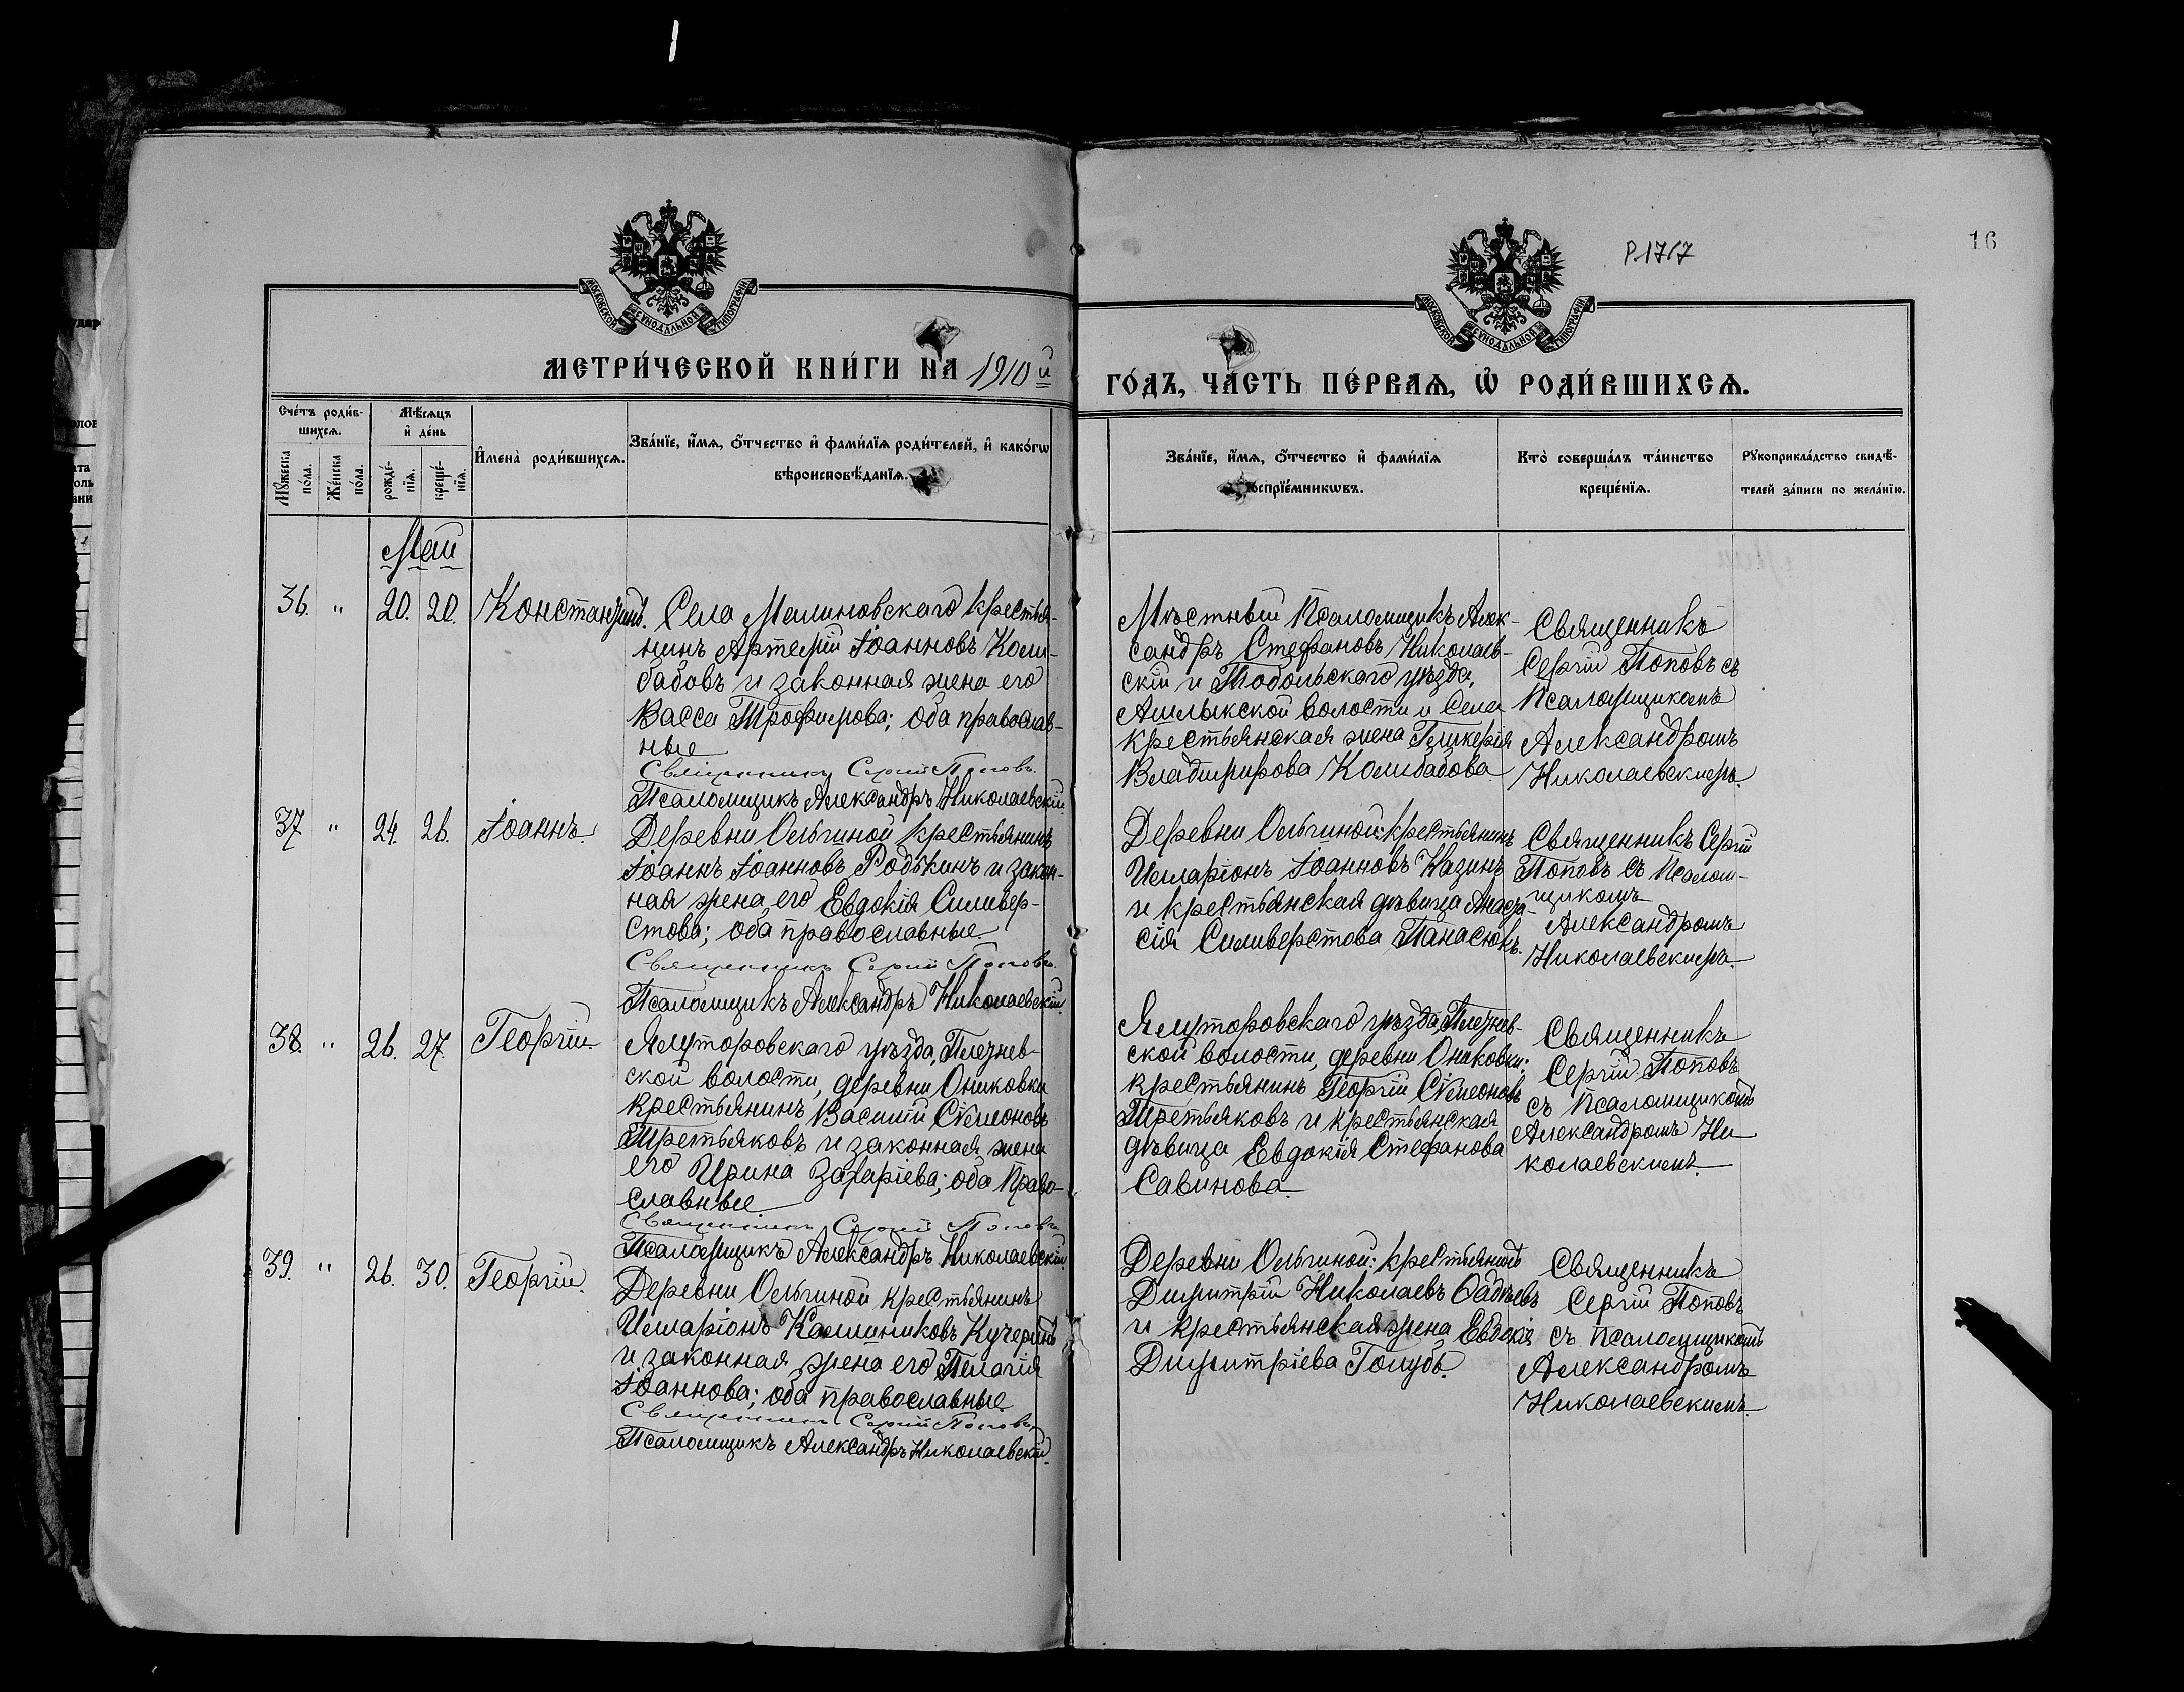 Р.1767
16
МОСКОВСКОЙ СѴНОДАЛЬНОЙ ТИПОГРАФІИ
МОСКОВСКОЙ СѴНОДАЛЬНОЙ ТИПОГРАФІИ
МЕТРИ́ЧЕСКОЙ КНИ́ГИ НА 1910й
ГО́ДЪ, ЧА́СТЬ ПЕ́РВАѦ, Ѡ҆ РОДИ́ВШИХСѦ.
Сче́тъ роди́в-
шихсѧ.
Мꙋ́жеска
по́ла.
Же́нска
по́ла.
Мѣ́сѧцъ
и҆ де́нь
рожде́-
нїѧ.
креще́-
нїѧ.
И҆мена̀ роди́вшихсѧ.
Зва́нїе, и҆́мѧ, ѻ҆́тчество и҆ фами́лїѧ роди́телей, и҆ како́гѡ
вѣроисповѣ́данїѧ.
Зва́нїе, и҆́мѧ, ѻ҆́тчество и҆ фами́лїѧ
воспрїе́мникѡвъ.
Кто̀ соверша́лъ та́инство
креще́нїѧ.
Рꙋкоприкла́дство свидѣ́-
телей за́писи по жела́нїю.
Май
36. " 20. 20. Константинъ.
Села Малиновскаго крестья-
нинъ Артемій Іоанновъ Коли-
бабовъ и законная жена его
Васса Трофимова; оба православ-
ные
Священникъ Сергій Поповъ.
Псаломщикъ Александръ Николаевскій.
Мѣстный Псаломщикъ Алек-
сандръ Стефановъ Николаев-
скій и Тобольскаго уѣзда,
Ашлыкской волости и Села
крестьянская жена Гликерія
Владимірова Колибабова
Священникъ
Сергій Поповъ съ
Псаломщикомъ
Александромъ
Николаевскимъ.
37 " 24. 26. Іоаннъ.
Деревни Ольгиной крестьянинъ
Іоаннъ Іоанновъ Родькинъ и закон-
ная жена его Евдокія Силивер-
стова; оба православные
Священникъ Сергій Поповъ.
Псаломщикъ Александръ Николаевскій.
Деревни Ольгиной: крестьянинъ
Иларіонъ Іоанновъ Казинъ
и крестьянская дѣвица Анаста-
сія Силиверстова Панасюкъ.
Священникъ Сергій
Поповъ съ Псалом-
щикомъ
Александромъ
Николаевскимъ.
38. " 26. 27. Георгій.
Ялуторовскаго уѣзда, Плетнев-
ской волости, деревни Ониковки
крестьянинъ Василій Сѵмеоновъ
Третьяковъ и законная жена
его Ирина Захаріева; оба Право-
славные
Священникъ Сергій Поповъ.
Псаломщикъ Александръ Николаевскій.
Ялуторовскаго уѣзда, Плетнев-
ской волости, деревни Ониковки:
крестьянинъ Георгій Сѵмеоновъ
Третьяковъ и крестьянская
дѣвица Евдокія Стефанова
Савинова.
Священникъ
Сергій Поповъ
съ Псаломщикомъ
Александромъ Ни
колаевскимъ.
39. " 26. 30. Георгій.
Деревни Ольгиной крестьянинъ
Иларіонъ Каллиниковъ Кучеринъ
и законная жена его Пелагія
Іоаннова; оба православные.
Священникъ Сергій Поповъ.
Псаломщикъ Александръ Николаевскій.
Деревни Ольгиной: крестьянинъ
Димитрій Николаевъ
и крестьянская жена Евдокія
Димитріева Голубь.
Священникъ
Сергій Поповъ
съ Псаломщикомъ
Александромъ
Николаевскимъ.